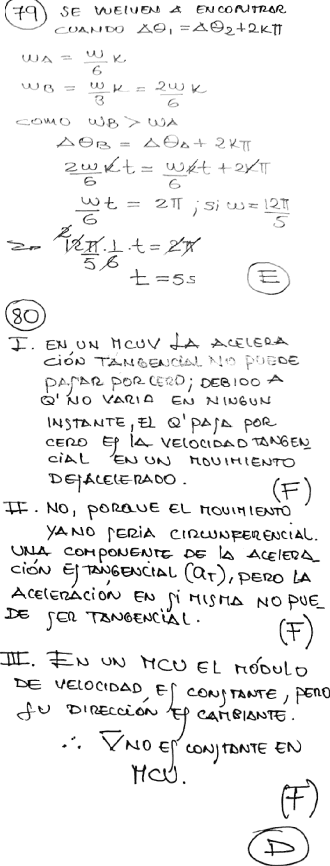 79 SE VUELVEN A ENCONTRAR
CUANDO Δθ₁ = Δθ₂ + 2Kπ
WA = W/6 K
WB = W/3 K = 2W/6 K
COMO WB > WA
ΔθB = ΔθA + 2Kπ
2W/6 K t = W/6 K t + 2Kπ
W/6 t = 2π ; Si W = 12π/5
⇒ 12π/5 · 1/6 · t = 2π
t = 5s E
80
I. EN UN MCUV LA ACELERA
CIÓN TANGENCIAL NO PUEDE
PASAR POR CERO; DEBIDO A
Q' NO VARIA EN NINGUN
INSTANTE, EL Q' PASA POR
CERO ES LA VELOCIDAD TANGEN
CIAL EN UN MOVIMIENTO
DESACELERADO. (F)
II. NO, PORQUE EL MOVIMIENTO
YA NO SERIA CIRCUNFERENCIAL.
UNA COMPONENTE DE LA ACELERA_
CIÓN ES TANGENCIAL (aT), PERO LA
ACELERACIÓN EN SI MISMA NO PUE_
DE SER TANGENCIAL. (F)
III. EN UN MCU EL MÓDULO
DE VELOCIDAD ES CONSTANTE, PERO
SU DIRECCIÓN ES CAMBIANTE.
∴ V NO ES CONSTANTE EN
MCU. (F)
D